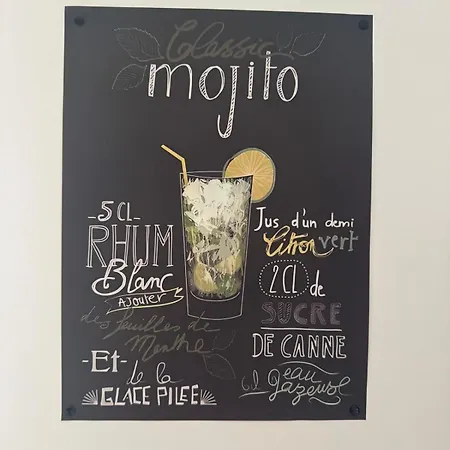 Classic
mojito
5 CL
RHUM
Blanc
AJOUTER
des feuilles de
Menthe
-Et-
de la
GLACE PILEE
Jus d'un demi
Citron vert
2 CL de
SUCRE
DE CANNE
6cl d'eau
gazeuse